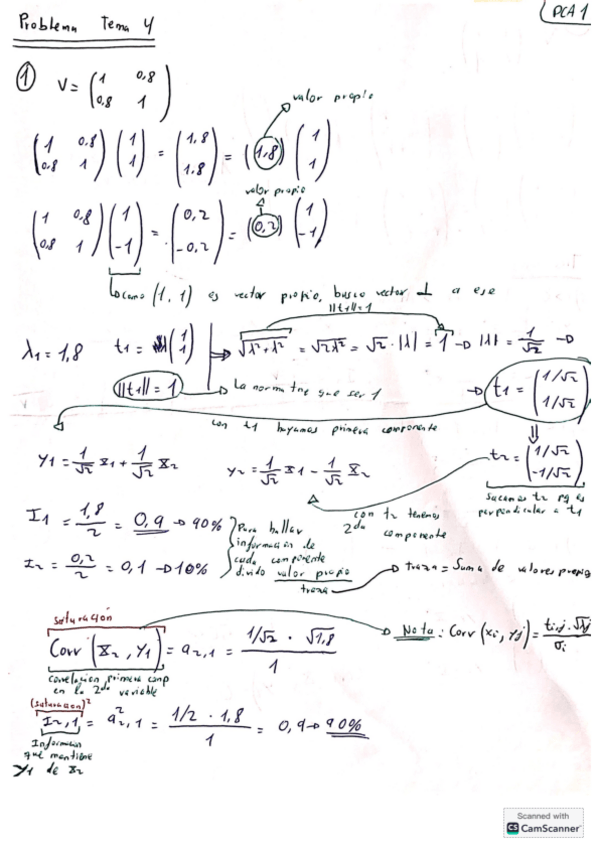 PCA 1
Problema Tema 4
① V = (1 0,8 / 0,8 1)
valor propio
(1 0,8 / 0,8 1) (1 / 1) = (1,8 / 1,8) = (1,8) (1 / 1)
valor propio
(1 0,8 / 0,8 1) (1 / -1) = (0,2 / -0,2) = (0,2) (1 / -1)
como (1,1) es vector propio, busco vector ⊥ a ese
||t1||=1
λ1 = 1,8 t1 = (1 / 1) → √λ²+λ² = √2λ² = √2 · |λ| = 1 → |λ| = 1/√2 →
||t1|| = 1 → La norma tne que ser 1
→ t1 = (1/√2 / 1/√2)
con t1 hayamos primera componente
y1 = 1/√2 x1 + 1/√2 x2 y2 = 1/√2 x1 - 1/√2 x2
t2 = (1/√2 / -1/√2)
sacamos t2 pq es
perpendicular a t1
con t2 tenemos
2da componente
I1 = 1,8/2 = 0,9 → 90%
I2 = 0,2/2 = 0,1 → 10%
Para hallar
información de
cada componente
divido valor propio
traza
→ traza = Suma de valores propios
saturación
Corr (x2, y1) = a2,1 = 1/√2 · √1,8 / 1
→ Nota: Corr (xi, yj) = ti,j · √λj / σi
correlacion primera comp
en la 2da variable
(saturacion)²
I2,1 = a²2,1 = 1/2 · 1,8 / 1 = 0,9 → 90%
Informacion
que mantiene
y1 de x2
Scanned with
CS CamScanner